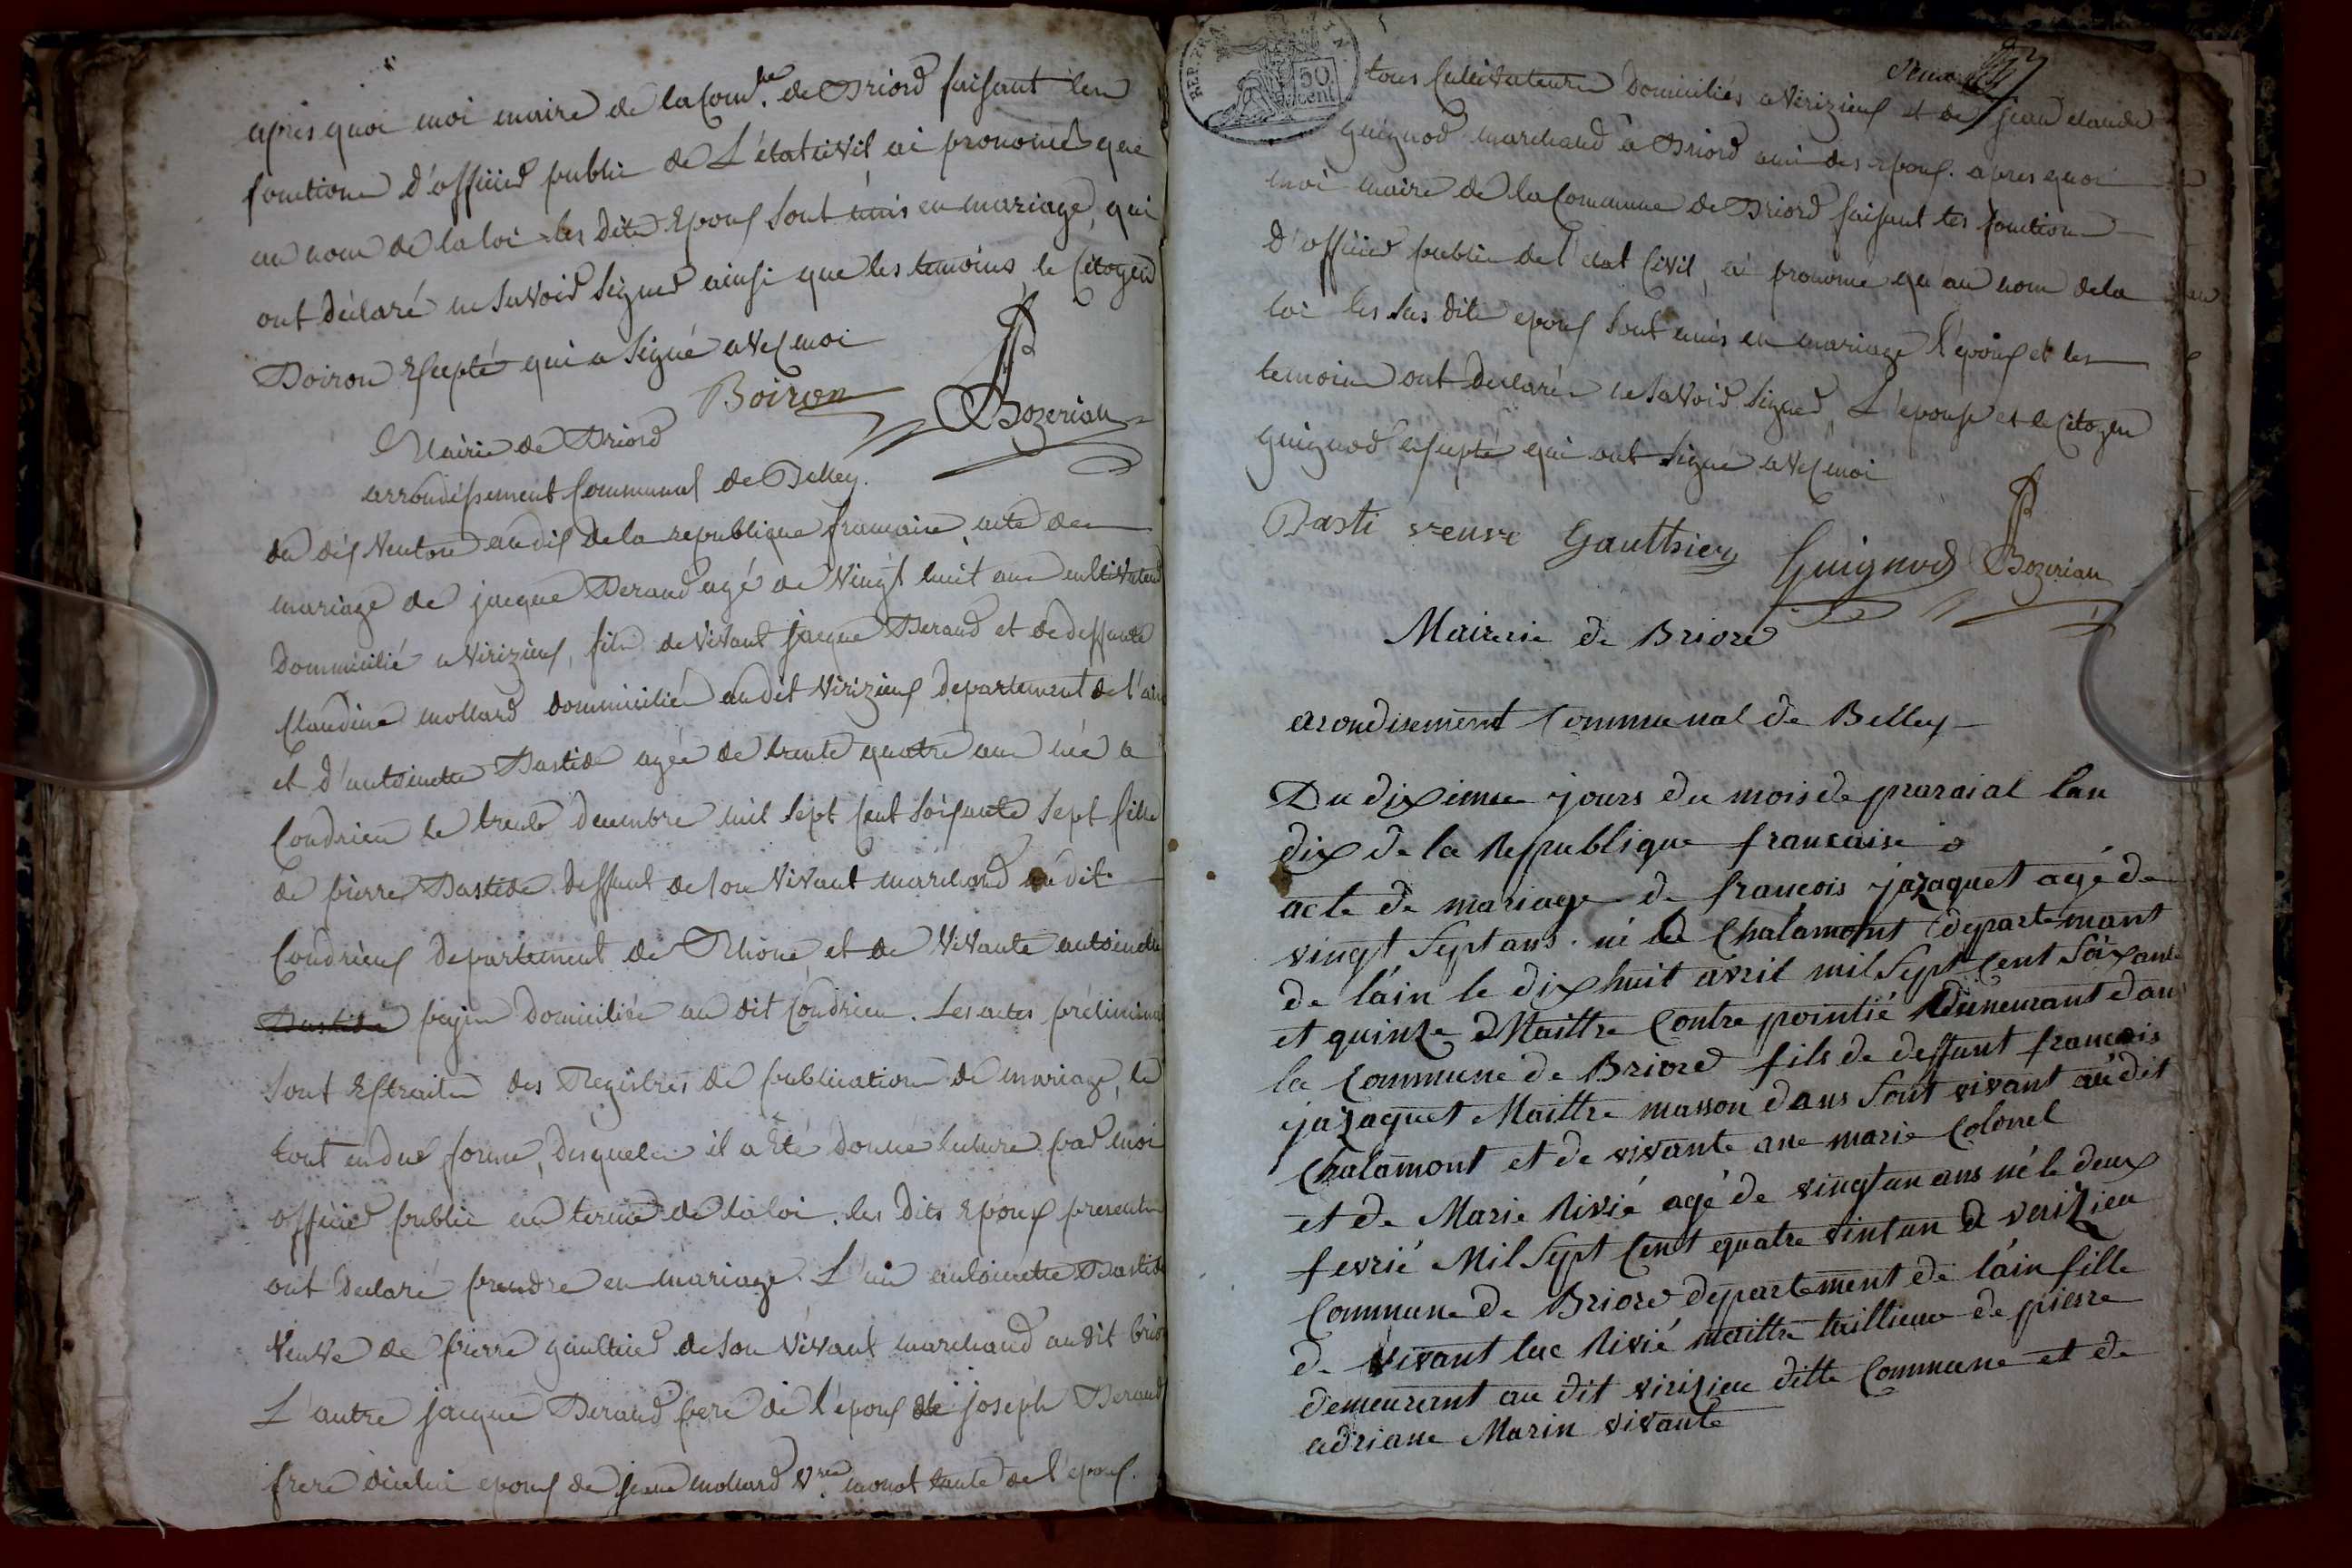 après quoi moi maire de la Com.ne de Briord faisant les
fonctions d'officier public de L'état civil ai prononcé que
au nom de la loi les dits Epoux sont unis en mariage, qui
ont déclaré ne savoir signer ainsi que les temoins le Citoyen
Boiron Excepté qui a signé avec moi
Boiron
Bozerian
Mairie de Briord
arrondissement Communal de Belley.
du dix Ventose an dix de la republique francaise, acte de
mariage de jacque Beraud agé de vingt huit ans cultivateur
Dommicilié a Virizieux, fils de vivant jacque Beraud et de deffunte
Claudine mollard dommiciliés au dit Virizieux departement de l'ain
et d'antoinette Bastide agée de trente quatre ans née a
Condrieu le trente decembre mil sept cent soixante sept fille
de pierre Bastide deffunt de son vivant marchand au dit
Condrieux departement de Rhone et de vivante antoinette
Domiciliée au dit Condrieu. Les actes préliminai
sont Extraits des Registres de publication de mariage, le
tout en due forme, desquels il a Eté donné lecture par moi
officier public au terme de la loi. les dits Epoux presents
ont declaré prendre en mariage L'un antoinette Bastide
veuve de pierre gaultier de son vivant marchand au dit brio
L'autre jacque Beraud pere de l'epoux de joseph Beraud
frere dicelui epoux de jeane mollard V.ve monot tante de l'epoux.
REP. FRA
50 cent
tous Cultivateurs Domiciliés a Virizieux et de jean claude
guignod marchand a Briord ami des epoux. apres quoi
moi maire de la Commune de Briord faisant les fonctions
d'officier public de l'etat Civil, ai prononcé qu'au nom de la
loi les sus dits epoux sont unis en mariage l'epoux et les
temoins ont declarés ne savoir signer, L'epouse et le Citoyen
guignod excepté qui ont signé avec moi
Basti veuve Gautthier
Guignod
Bozerian
Mairerie de Briore
arondisement Communal de Belley
Du dixieme jours du mois de prarial lan
dix de la Republique francaise
acte de mariage de francois jazaquet agé de
vingt sept ans. né a Chalamont departemant
de láin le dix huit avril mil sept Cent soixante
et quinze Maittre Contre pointié demeurant dans
la Commune de Briord fils de deffunt francois
jazaquet Maittre masson dans sont vivant audit
Chalamont et de vivante ane marie Colonel
et de Marie Rivié agé de vingt un ans né le deux
fevrié Mil sept Cent quatre vint un a verizieu
Commune de Briord departement de láin fille
de vivant luc Rivié maittre taillieur de pierre
demeurant au dit virizieu ditte Commune et de
adriane Marin vivante